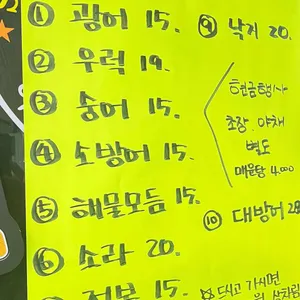 ① 광어 15.
② 우럭 19.
③ 숭어 15.
④ 소방어 15.
⑤ 해물모듬 15.
⑥ 소라 20.
전복 15.
⑨ 낙지 20.
현금행사
초장. 야채
별도
매운탕 4.000
⑩ 대방어 28
드시고 가시면